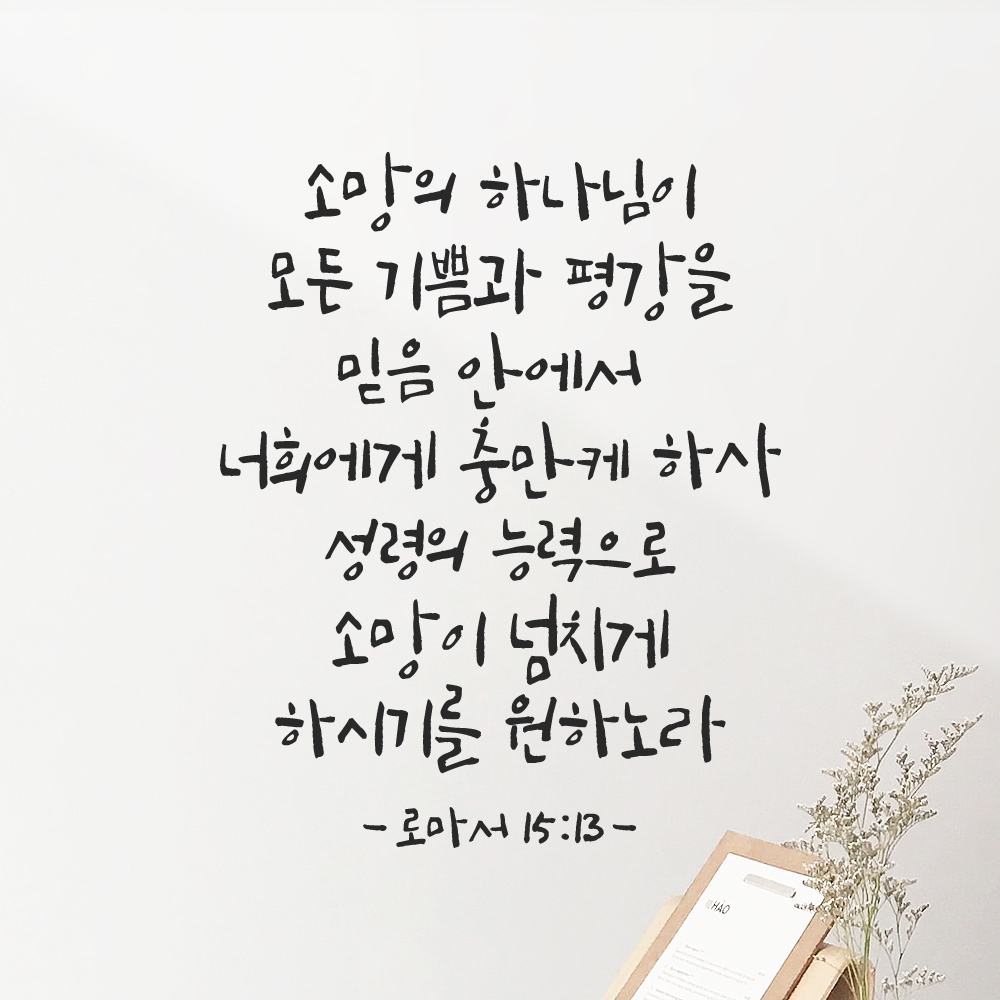 소망의 하나님이
모든 기쁨과 평강을
믿음 안에서
너희에게 충만케 하사
성령의 능력으로
소망이 넘치게
하시기를 원하노라
- 로마서 15:13 -
HAO